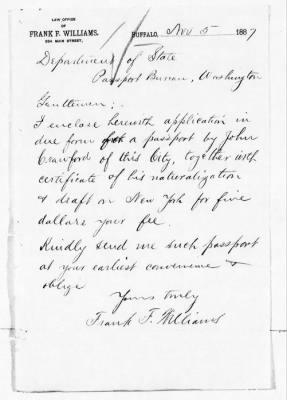 LAW OFFICE
OF
FRANK F. WILLIAMS.
MAIN STREET,
BUFFALO, Nov 5 1887
Department of State
Passport Bureau, Washington
Gentlemen:
I enclose herewith application in
due form for a passport by John
Crawford of this City, together with
certificate of his naturalization
& draft on New York for five
dollars your fee.
Kindly send me such passport
at your earliest convenience &
oblige
Yours truly
Frank F. Williams